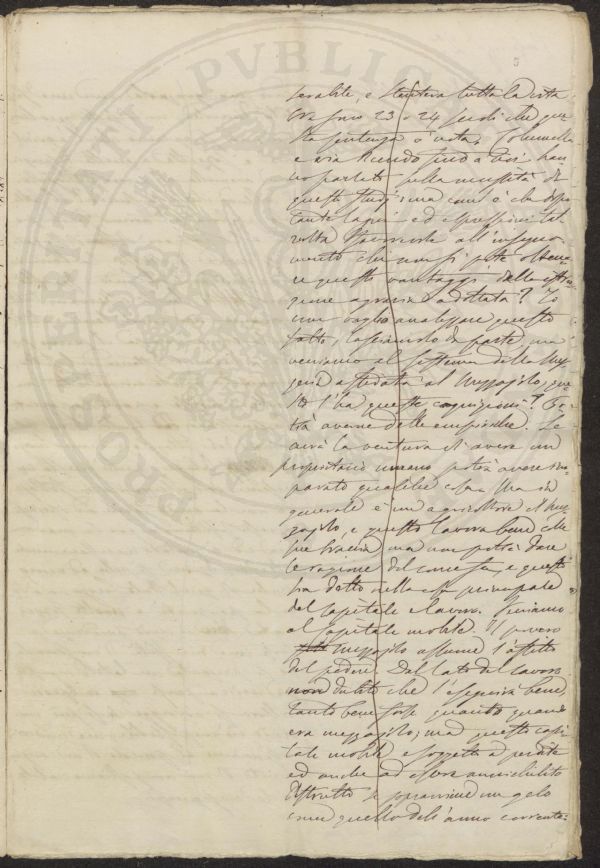 PROSPERITATI PVBLICAE
5
serabile, e stentava tutta la vita
Ora sono 23 o 24 secoli che que-
sta sentenza è nota. Columella
e via dicendo fino a noi han-
no parlato sulla necessità di
questi studj; ma com'è che dopo
tante
ed espressioni tal
volta all'insegna-
mento che non si può ottene-
re questi vantaggi dalla istru-
zione agraria adottata? Io
non voglio analizzare questo
fatto, lasciamolo da parte, ma
veniamo al sistema della mez-
zeria affidata al mezzajolo; que-
sti l'ha queste cognizioni? Po-
trà averne delle empiriche. Se
avrà la ventura di avere un
proprietario umano potrà avere im-
parato qualche cosa. Ma in
generale è un agricoltore il mez-
zajolo, e questo lavora bene colle
sue braccia ma non potrà dare
le ragione del come fa, e questo
ha detto nella cosa principale
del capitale e lavoro. Veniamo
al Capitale mobile. Il povero
mezzajolo assume l'affitto
del podere. Dal lato del lavoro
non dubito che l'eseguirà bene,
tanto bene forse quanto quando
era mezzajolo; ma questo capi-
tale mobile è soggetto a perdite
ed anche ad essere annichilito
distrutto se sopravviene un gelo
come quello dell'anno corrente: